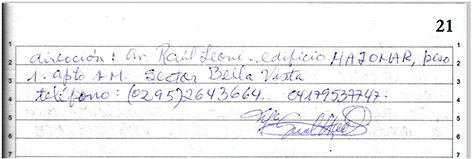 21
dirección: Av Raúl Leoni. edificio MAJOMAR, piso
1. apto 1M. Sector Bella Vista
teléfono: (0295)2643664. 04179539747.